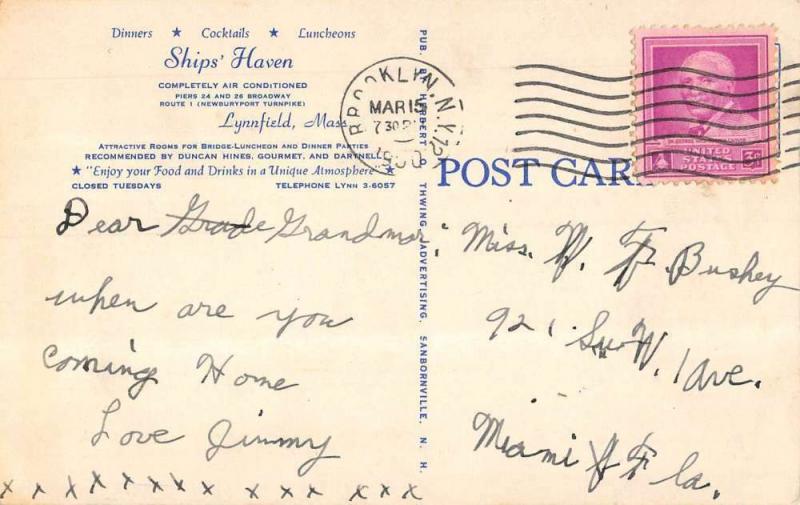 Dinners ★ Cocktails ★ Luncheons
Ships' Haven
COMPLETELY AIR CONDITIONED
PIERS 24 AND 26 BROADWAY
ROUTE 1 (NEWBURYPORT TURNPIKE)
Lynnfield, Mass.
ATTRACTIVE ROOMS FOR BRIDGE-LUNCHEON AND DINNER PARTIES
RECOMMENDED BY DUNCAN HINES, GOURMET, AND DARTNELL
★ "Enjoy your Food and Drinks in a Unique Atmosphere" ★
CLOSED TUESDAYS TELEPHONE LYNN 3-6057
Dear Grade Grandmar,
when are you
coming Home
Love Jimmy
x x x x x x x x x x x x x
PUB. BY HERBERT O. THWING ADVERTISING, SANBORNVILLE, N. H.
BROOKLYN, N.Y. 72
MAR 15
7 30 P
1950
UNITED
STATES
POSTAGE
3¢
POST CARD
Miss. W. F. Bushey
921 S.W. 1 ave.
Miami Fla.